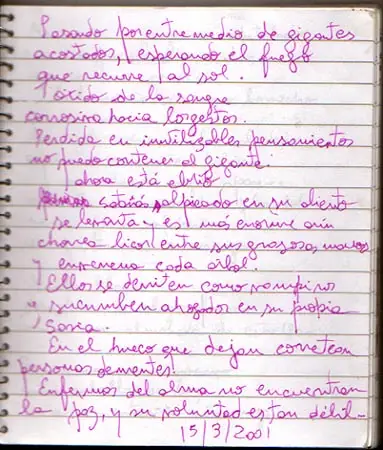 Pasando por entre medio de gigantes
acostados, esperando el fuego
que recurre al sol.
Tóxido de la sangre
corrosiva hacia los gestos.
Perdida en inutilizables pensamientos
no puedo contener al gigante.
ahora está ebrio
salpicado en su aliento
se levanta y es más enorme aún
chorrea licor entre sus grasosas manos
y envenena cada árbol.
Ellos se derriten como vampiros
y sucumben ahogados en su propia
Savia.
En el hueco que dejan corretean
personas dementes!
Enfermos del alma no encuentran
la paz, y su voluntad es tan débil-
15/3/2001